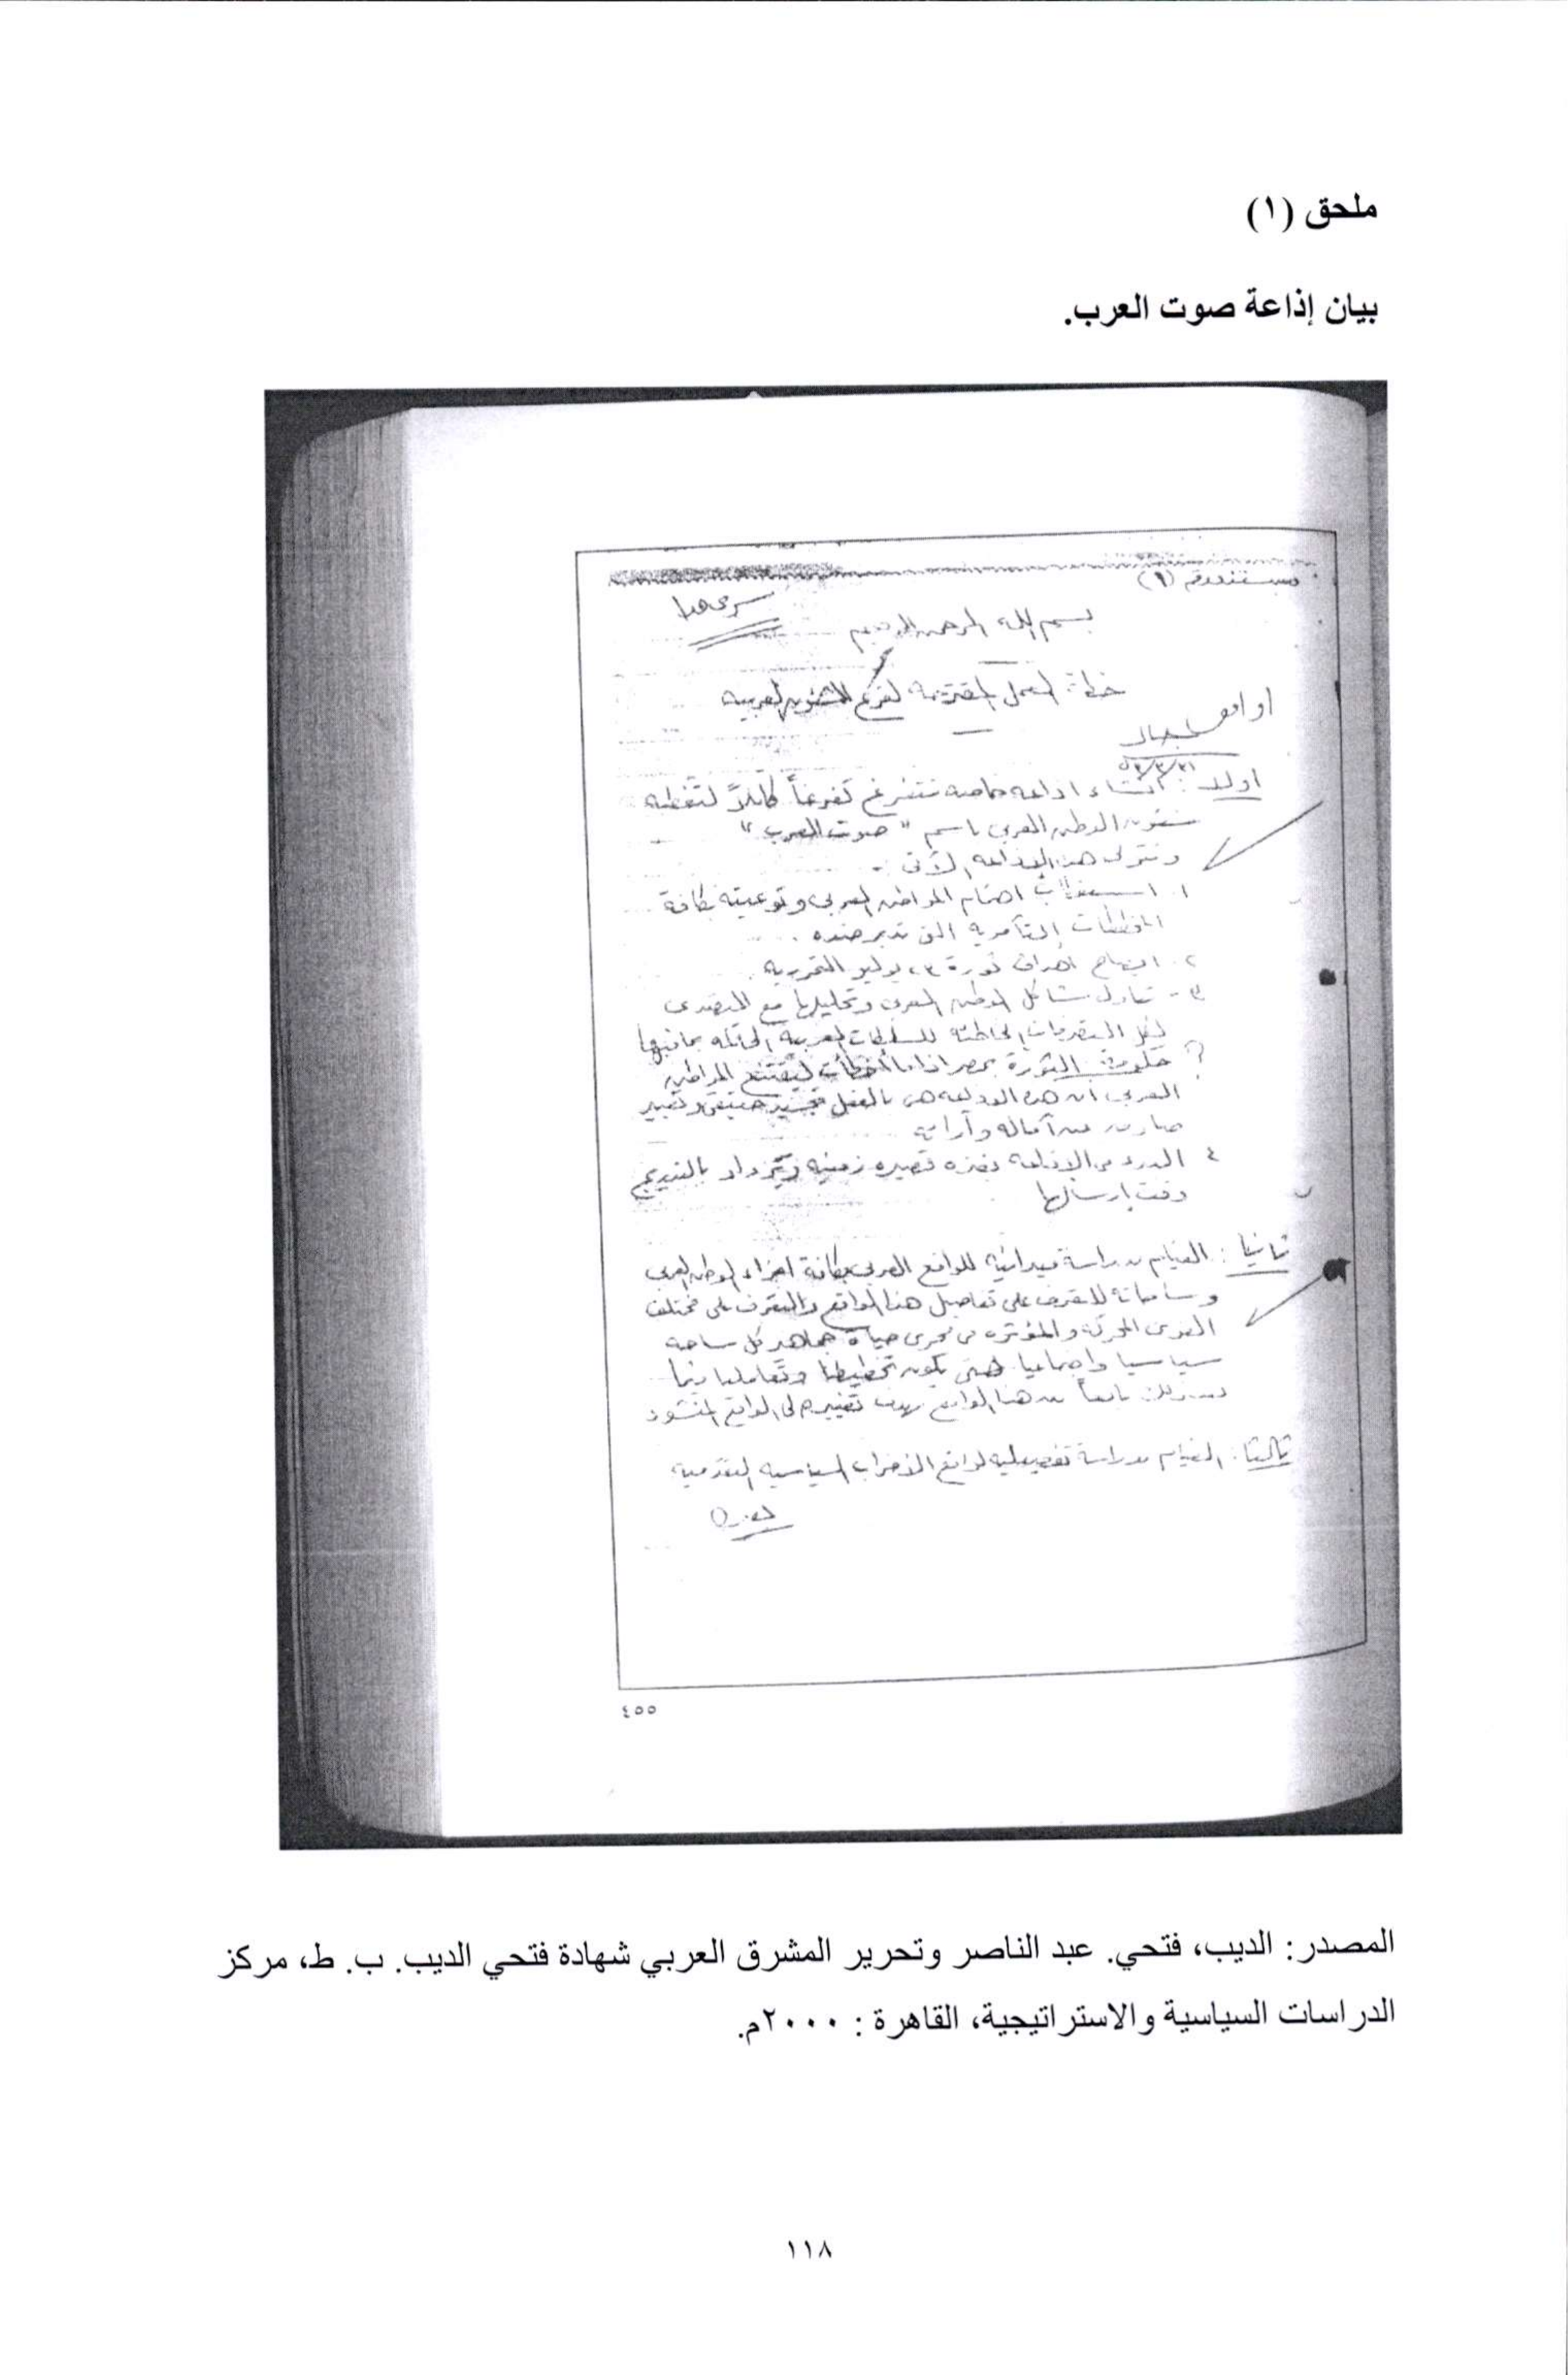 ملحق (١)
بيان إذاعة صوت العرب.
مستند رقم (١)
سرى جدا
بسم الله الرحمن الرحيم
خطة العمل المقترحة لفرع الشئون العربيه
اوافق
جمال
اولا : انشاء اذاعه خاصه تتفرغ تفرغاً كاملاً لتغطيه
شئون الوطن العربى باسم " صوت العرب "
وتتولى هذه الإذاعه الآتى :-
١. اهتمام المواطن العربى وتوعيته بكافة
المخططات التآمريه التى تدبر ضده .
٢. ايضاح اهداف ثورة ٢٣ يوليو التحرريه .
٣ - تناول مشاكل الوطن العربى وتحليلها مع التصدى
لكل التصرفات الخاطئه للسلطات العربيه بما فيها
حكومة الثورة بمصر اذا ما أخطأت ليقتنع المواطن
العربى ان هذه هى بالفعل تجسيد حقيقى وتعبير
صادق عن آماله وآرائه
٤ البدء فى الإذاعه بفتره قصيره زمنيه ويزداد بالتدريج
وقت إرسالها
ثانيا : القيام بدراسة ميدانيه للواقع العربى بكافة اجزاء الوطن العربى
وساحاته للتعرف على تفاصيل هذا الواقع والتعرف على مختلف
القوى المحركه والمؤثره فى مجرى حياة جماهير كل ساحه
سياسيا واجتماعيا حتى يكون تخطيطنا وتعاملنا
نابعاً من هذا الواقع بهدف تغييره إلى الواقع المنشود
ثالثا : القيام بدراسة تفصيليه لواقع الأحزاب السياسيه التقدميه
٤٥٥
المصدر: الديب، فتحي. عبد الناصر وتحرير المشرق العربي شهادة فتحي الديب. ب. ط، مركز
الدراسات السياسية والاستراتيجية، القاهرة : ٢٠٠٠م.
١١٨